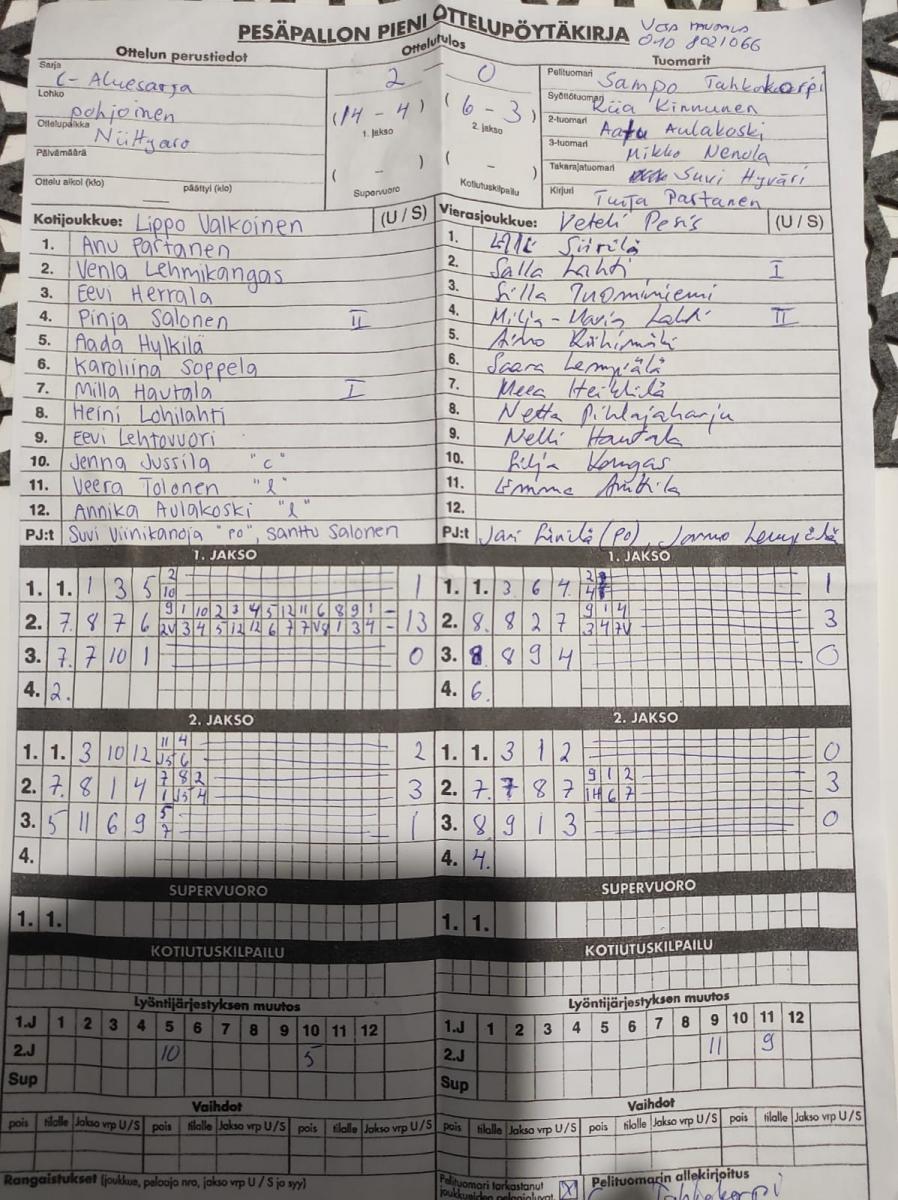 PESÄPALLON PIENI OTTELUPÖYTÄKIRJA
010 8021066
Ottelun perustiedot
Ottelutulos
Tuomarit
Sarja C-Aluesarja
2 0
Pelituomari Sampo Tahkokorpi
Lohko pohjoinen
(14 - 4) 1. jakso
(6 - 3) 2. jakso
Syöttötuomari Kiia Kinnunen
Ottelupaikka Niittyaro
2-tuomari Aatu Aulakoski
Päivämäärä
3-tuomari Mikko Nenola
( - ) Supervuoro
( - ) Kotiutuskilpailu
Takarajatuomari Suvi Hyväri
Ottelu alkoi (klo) päättyi (klo)
Kirjuri Tuija Partanen
Kotijoukkue: Lippo Valkoinen (U / S)
1. Anu Partanen
2. Venla Lehmikangas
3. Eevi Herrala
4. Pinja Salonen II
5. Aada Hylkilä
6. Karoliina Soppela
7. Milla Hautala I
8. Heini Lohilahti
9. Eevi Lehtovuori
10. Jenna Jussila "c"
11. Veera Tolonen "l"
12. Annika Aulakoski "l"
PJ:t Suvi Viinikanoja "po", Santtu Salonen
Vierasjoukkue: Veteli Pesis (U / S)
1. Siirilä
2. Salla Lahti I
3. Silla Tuominiemi
4. Milja-Maria Lahti II
5. Aino Riihimäki
6. Saara Lempiälä
7. Meea Heikkilä
8. Netta Pihlajaharju
9. Nelli Hautala
10. Silja Kangas
11. Emma Anttila
12.
PJ:t Jari (po), Jarmo Lempiälä
1. JAKSO
1. 1. 1 3 5 2 1
10
2. 7. 8 7 6 9 1 10 2 3 4 5 12 11 6 8 9 1 - 13
2V 3 4 5 12 12 6 7 7V 8 1 3 4 -
3. 7. 7 10 1 0
4. 2.
1. JAKSO
1. 1. 3 6 4 2 1
4
2. 8. 8 2 7 9 1 4 3
3 4 7V
3. 8 8 9 4 0
4. 6.
2. JAKSO
1. 1. 3 10 12 11 4 2
15 6
2. 7. 8 1 4 7 8 2 3
1 15 4
3. 5 11 6 9 5 1
7
4.
2. JAKSO
1. 1. 3 1 2 0
2. 7. 7 8 7 9 1 2 3
6 7
3. 8 9 1 3 0
4. 4.
SUPERVUORO
1. 1.
SUPERVUORO
1. 1.
KOTIUTUSKILPAILU
KOTIUTUSKILPAILU
Lyöntijärjestyksen muutos
1.J 1 2 3 4 5 6 7 8 9 10 11 12
2.J 10 5
Sup
Lyöntijärjestyksen muutos
1.J 1 2 3 4 5 6 7 8 9 10 11 12
2.J 11 9
Sup
Vaihdot
pois tilalle Jakso vrp U/S pois tilalle Jakso vrp U/S pois tilalle Jakso vrp U/S
Vaihdot
pois tilalle Jakso vrp U/S pois tilalle Jakso vrp U/S pois tilalle Jakso vrp U/S
Rangaistukset (joukkue, pelaaja nro, jakso vrp U / S ja syy)
Pelituomari tarkastanut
joukkueiden pelaajaluvat. X
Pelituomarin allekirjoitus
Tahkokorpi